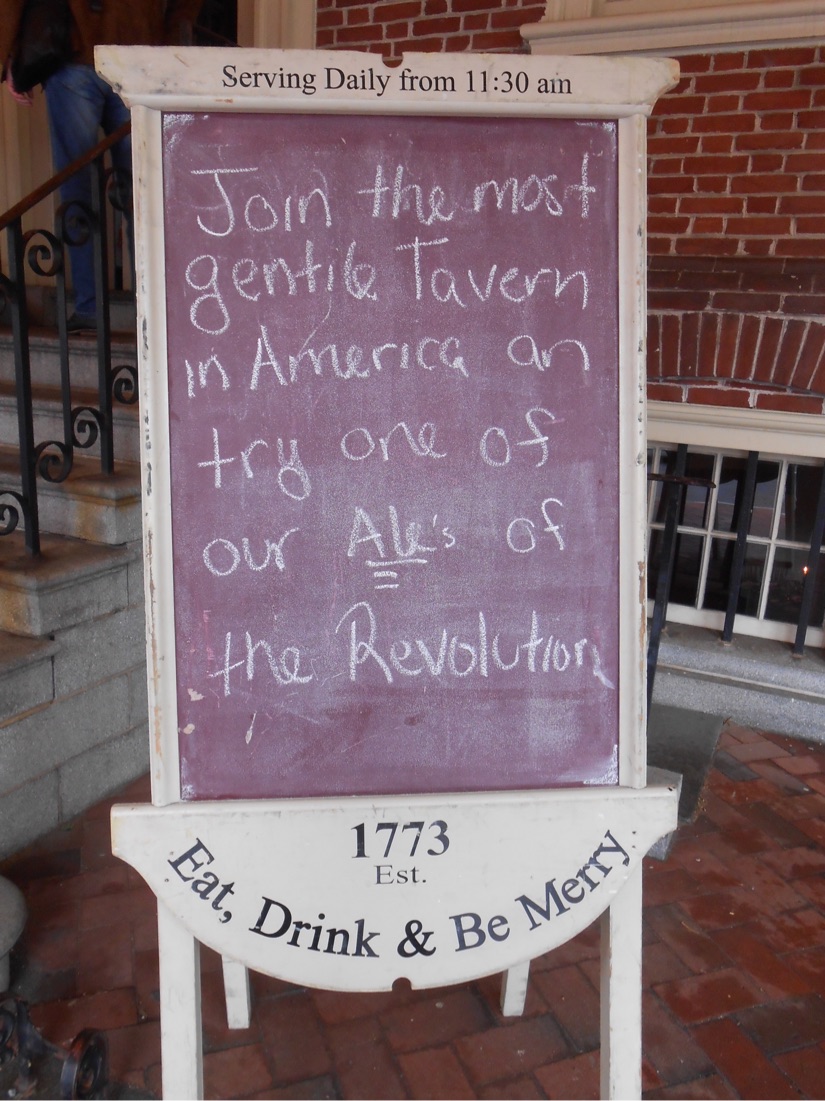 Serving Daily from 11:30 am
Join the most
gentile Tavern
in America an
try one of
our Ale's of
the Revolution
1773
Est.
Eat, Drink & Be Merry